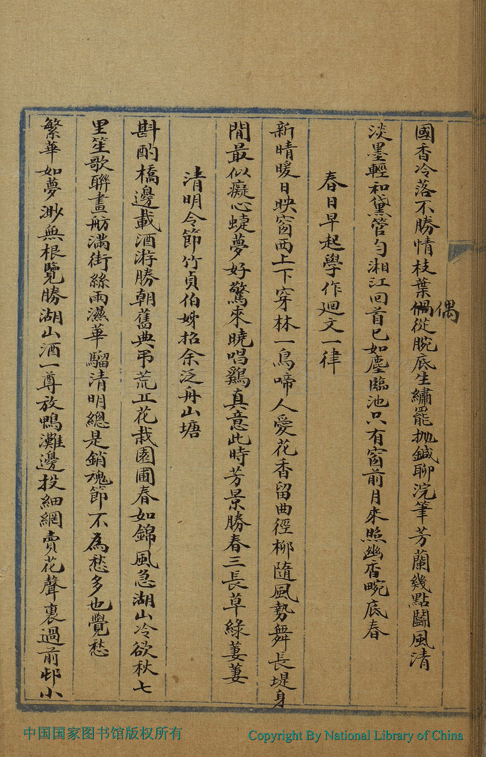 國香冷落不勝情枝葉偶從腕底生繡罷抛鍼聊浣筆芳蘭幾點鬪風清
偶
淡墨輕和黛管勻湘江回首已如塵臨池只有窗前月來照幽香畹底春
春日早起學作迴文一律
新晴暖日映窗西上下穿林一鳥啼人愛花香留曲徑柳隨風勢舞長堤身
閒最似癡心蜨夢好驚來曉唱鷄真意此時芳景勝春三長草綠萋萋
清明令節竹貞伯姊招余泛舟山塘
斟酌橋邊載酒游勝朝舊典弔荒丘花栽園圃春如錦風急湖山冷欲秋七
里笙歌聯畫舫滿街絲雨濕華騮清明總是銷魂節不為愁多也覺愁
繁華如夢渺無根覽勝湖山酒一尊放鴨灘邊投細網賣花聲裏過前邨小
中国国家图书馆版权所有
Copyright By National Library of China